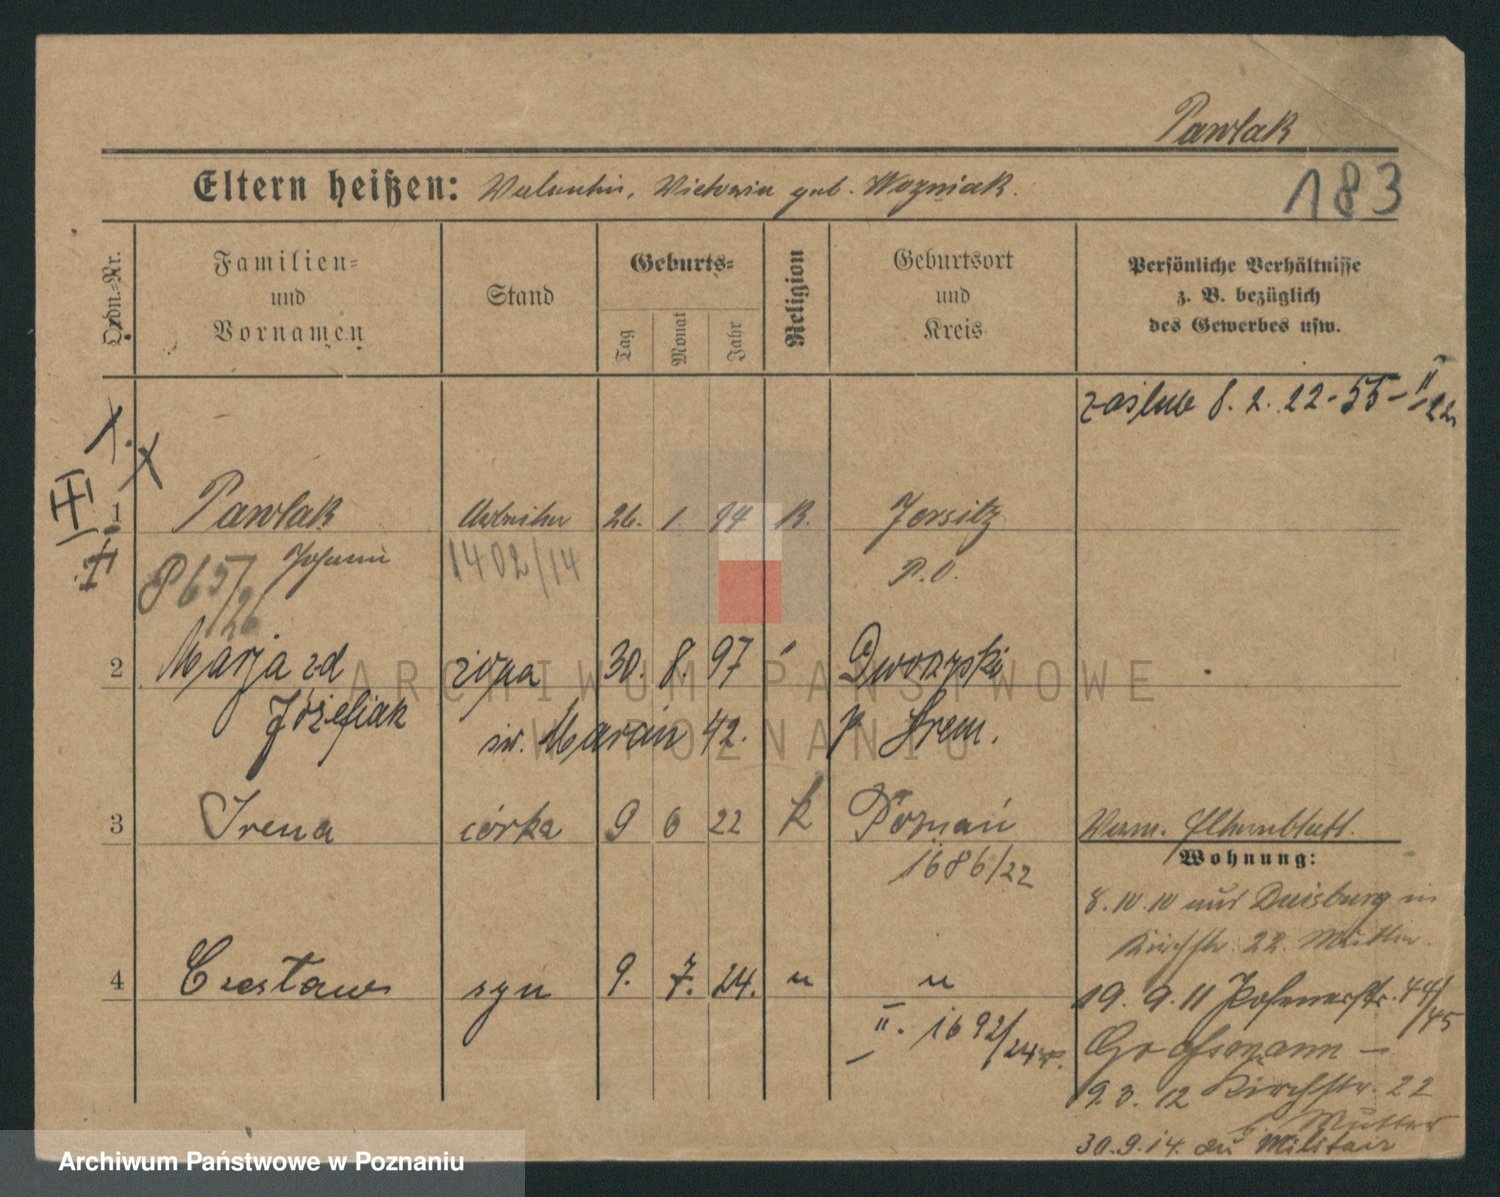 Pawlak
Eltern heißen: Valentin, Victoria geb. Wozniak.
183
Ordn.-Nr.
Familien- und Vornamen
Stand
Geburts-
Tag
Monat
Jahr
Religion
Geburtsort und Kreis
Persönliche Verhältnisse z. B. bezüglich des Gewerbes usw.
zaślub 8. 2. 22 - 55 - II 22
1.
III
1 Pawlak Arbeiter 26. 1. 94 K. Jersitz
Johann 1402/14 P. O.
P 65/26
2 Marja zd żona 30. 8. 97 " Dworzysk
Józefiak św. Marcin 42. p. Śrem.
3 Irena córka 9 6 22 k Poznań
1686/22
Verm. Elternblatt.
Wohnung:
8. 10. 10 aus Duisburg in
Kirchstr. 22. Mutter.
4 Czesław syn 9. 7. 24. " "
II. 1692/24
19. 9. 11 Posenerstr. 44/45
Großmann -
9. 3. 12 Kirchstr. 22
b. Mutter
30. 9. 14. zu Militair
ARCHIWUM PAŃSTWOWE
W POZNANIU
Archiwum Państwowe w Poznaniu